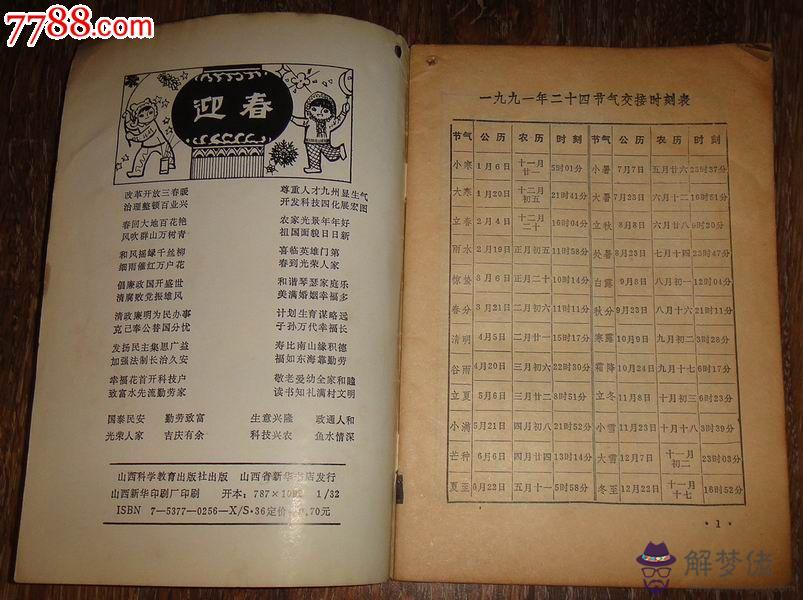 7788.com
迎春
改革开放三春暖 尊重人才九州显生气
治理整顿百业兴 开发科技四化展宏图
春回大地百花艳 农家光景年年好
风吹群山万树青 祖国面貌日日新
和风摇绿千丝柳 喜临英雄门第
细雨催红万户花 春到光荣人家
倡廉政国开盛世 和谐琴瑟家庭乐
清腐败党振雄风 美满婚姻幸福多
清政廉明为民办事 计划生育谋略远
克己奉公替国分忧 子孙万代幸福长
发扬民主集思广益 寿比南山缘积德
加强法制长治久安 福如东海靠勤劳
幸福花首开科技户 敬老爱幼全家和睦
致富水先流勤劳家 读书知礼满村文明
国泰民安 勤劳致富 生意兴隆 政通人和
光荣人家 吉庆有余 科技兴农 鱼水情深
山西科学教育出版社出版 山西省新华书店发行
山西新华印刷厂印刷 开本:787×1092 1/32
ISBN 7—5377—0256—X/S·36定价 0.70元
一九九一年二十四节气交接时刻表
节气 公历 农历 时刻 节气 公历 农历 时刻
小寒 1月6日 十一月廿一 5时01分 小暑 7月7日 五月廿六 23时37分
大寒 1月20日 十二月初五 21时41分 大暑 7月23日 六月十二 16时51分
立春 2月4日 十二月二十 16时04分 立秋 8月8日 六月廿八 9时20分
雨水 2月19日 正月初五 11时58分 处暑 8月23日 七月十四 23时47分
惊蛰 3月6日 正月二十 10时14分 白露 9月8日 八月初一 12时04分
春分 3月21日 二月初六 11时11分 秋分 9月23日 八月十六
清明 4月5日 二月廿一 15时17分 寒露 10月9日 九月初二 3时28分
谷雨 4月20日 三月初六 22时30分 霜降 10月24日 九月十七 6时17分
立夏 5月6日 三月廿二 8时51分 立冬 11月8日 十月初三 6时23分
小满 5月21日 四月初八 21时52分 小雪 11月23日 十月十八 3时39分
芒种 6月6日 四月廿四 13时54分 大雪 12月7日 十一月初二 23时03分
夏至 6月22日 五月十一 5时58分 冬至 12月22日 十一月十七 16时52分
·1·
解梦佬